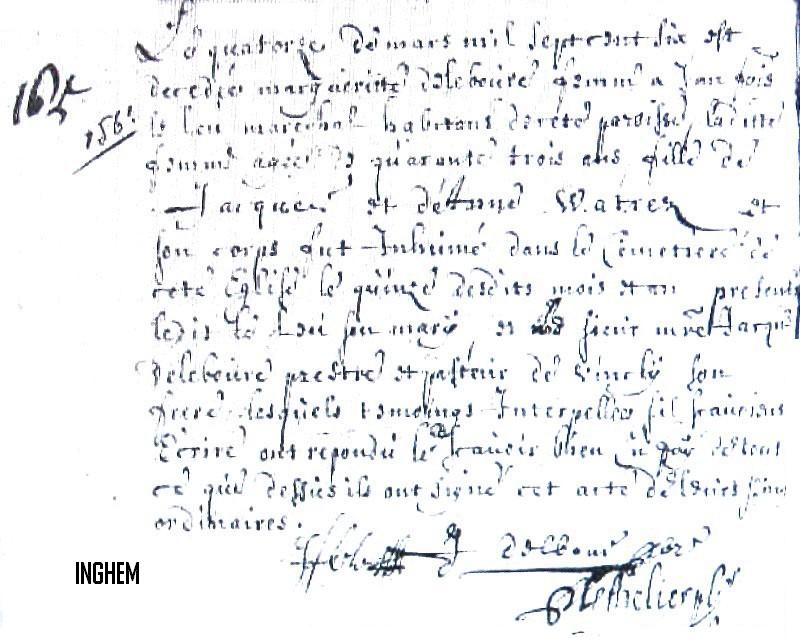 Le quatorze de mars mil sept cent six est
decedée margueritte delebourre femme a Jan fois
le leu marechal habitans de cete paroisse laditte
femme agée de quarante trois ans fille de
Jacques et de Anne Watrez et
son corps fut Inhumé dans le Cemetiere de
cete Eglise le quinze desdits mois et an presents
ledit le Leu son mary et sieur mre Jacques
delebourre prestre et pasteur de vincly son
frere lesquels temoings Interpellés sil scavoient
Ecrire ont repondu le scavoir bien de tout
ce que dessus ils ont signé cet acte de leurs seins
ordinaires.
INGHEM